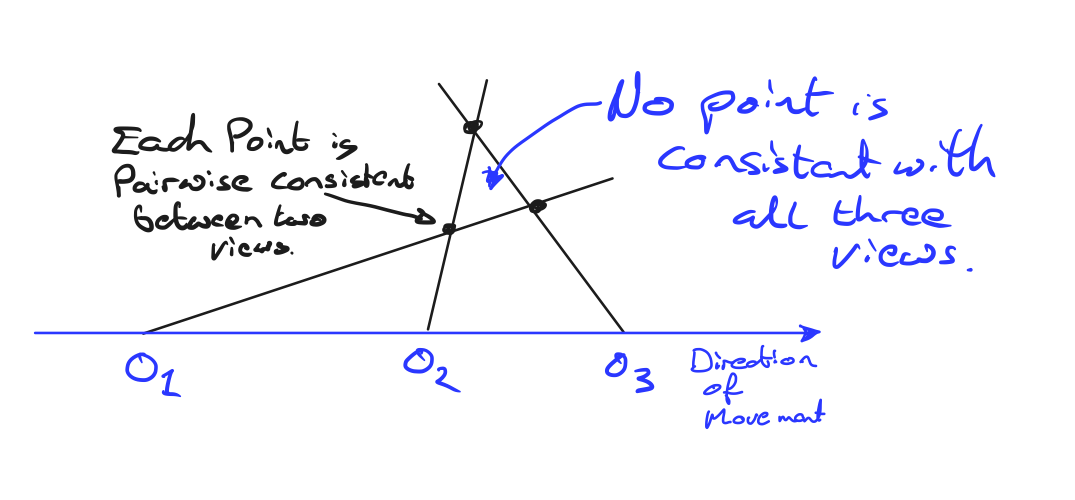 Each Point is
Pairwise consistent
between two
views.
No point is
consistant with
all three
views.
O1
O2
O3
Direction
of
Movement